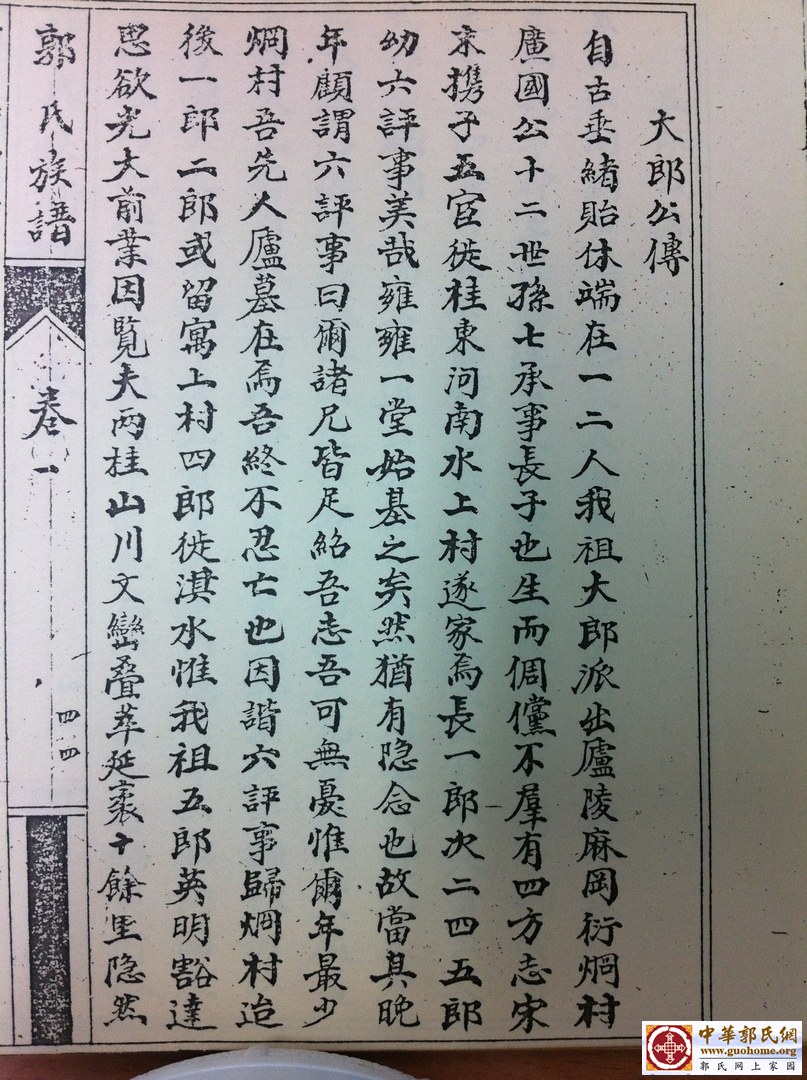 大郎公傳
自古垂緒貽休端在一二人我祖大郎派出廬陵麻岡衍烱村
廣國公十二世孫七承事長子也生而倜儻不羣有四方志宋
末携子五宦徙桂東河南水上村遂家焉長一郎次二四五郎
幼六評事美哉雍雍一堂始基之矣然猶有隐念也故當其晚
年顧謂六評事曰爾諸兄皆足紹吾志吾可無憂惟爾年最少
烱村吾先人廬墓在焉吾終不忍亡也因諧六評事歸烱村迨
後一郎二郎或留寓上村四郎徙淇水惟我祖五郎英明豁達
思欲光大前業因覧夫两桂山川文巒叠萃延袤十餘里隐然
郭氏族譜
卷一
四四
中華郭氏網
www.guohome.org
郭氏网上家园